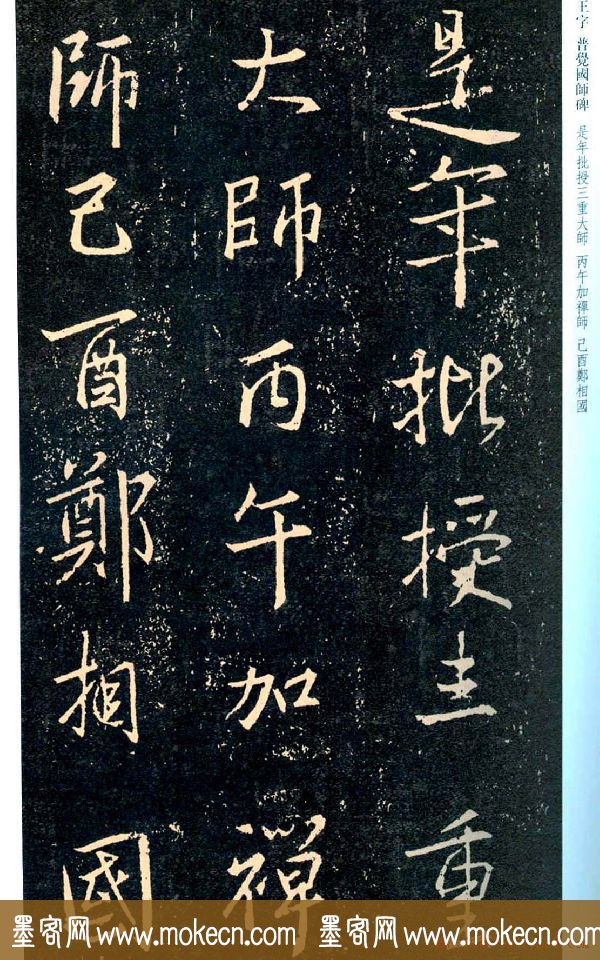 王字 普覺國師碑 是年批授三重大師 丙午加禪師 己酉鄭相國
是年批授三重
大師丙午加禪
師己酉鄭相國
墨客网 www.mokecn.com 墨客网 www.mokecn.com